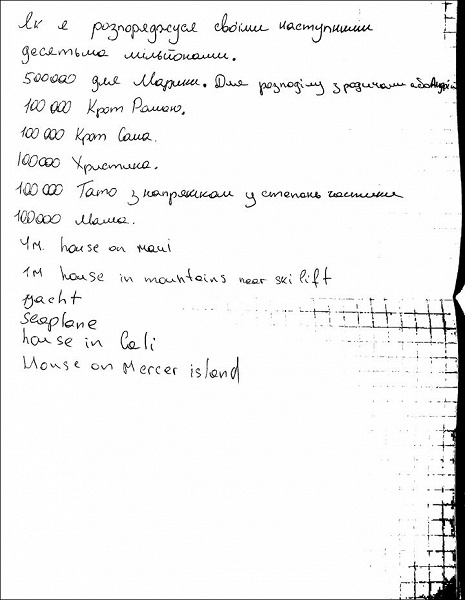 Як я розпоряджуся своїми наступними
десятьма мільйонами.
500000 для Марини. Для розподілу з родичами або Андрій
100 000 Крот Рамою.
100 000 Крот Саша.
100000 Христина.
100 000 Тато з напряжком у степень частини
100000 Мама.
4м. house on maui
1M house in mountains near ski lift
yacht
seaplane
house in Cali
House on Mercer island